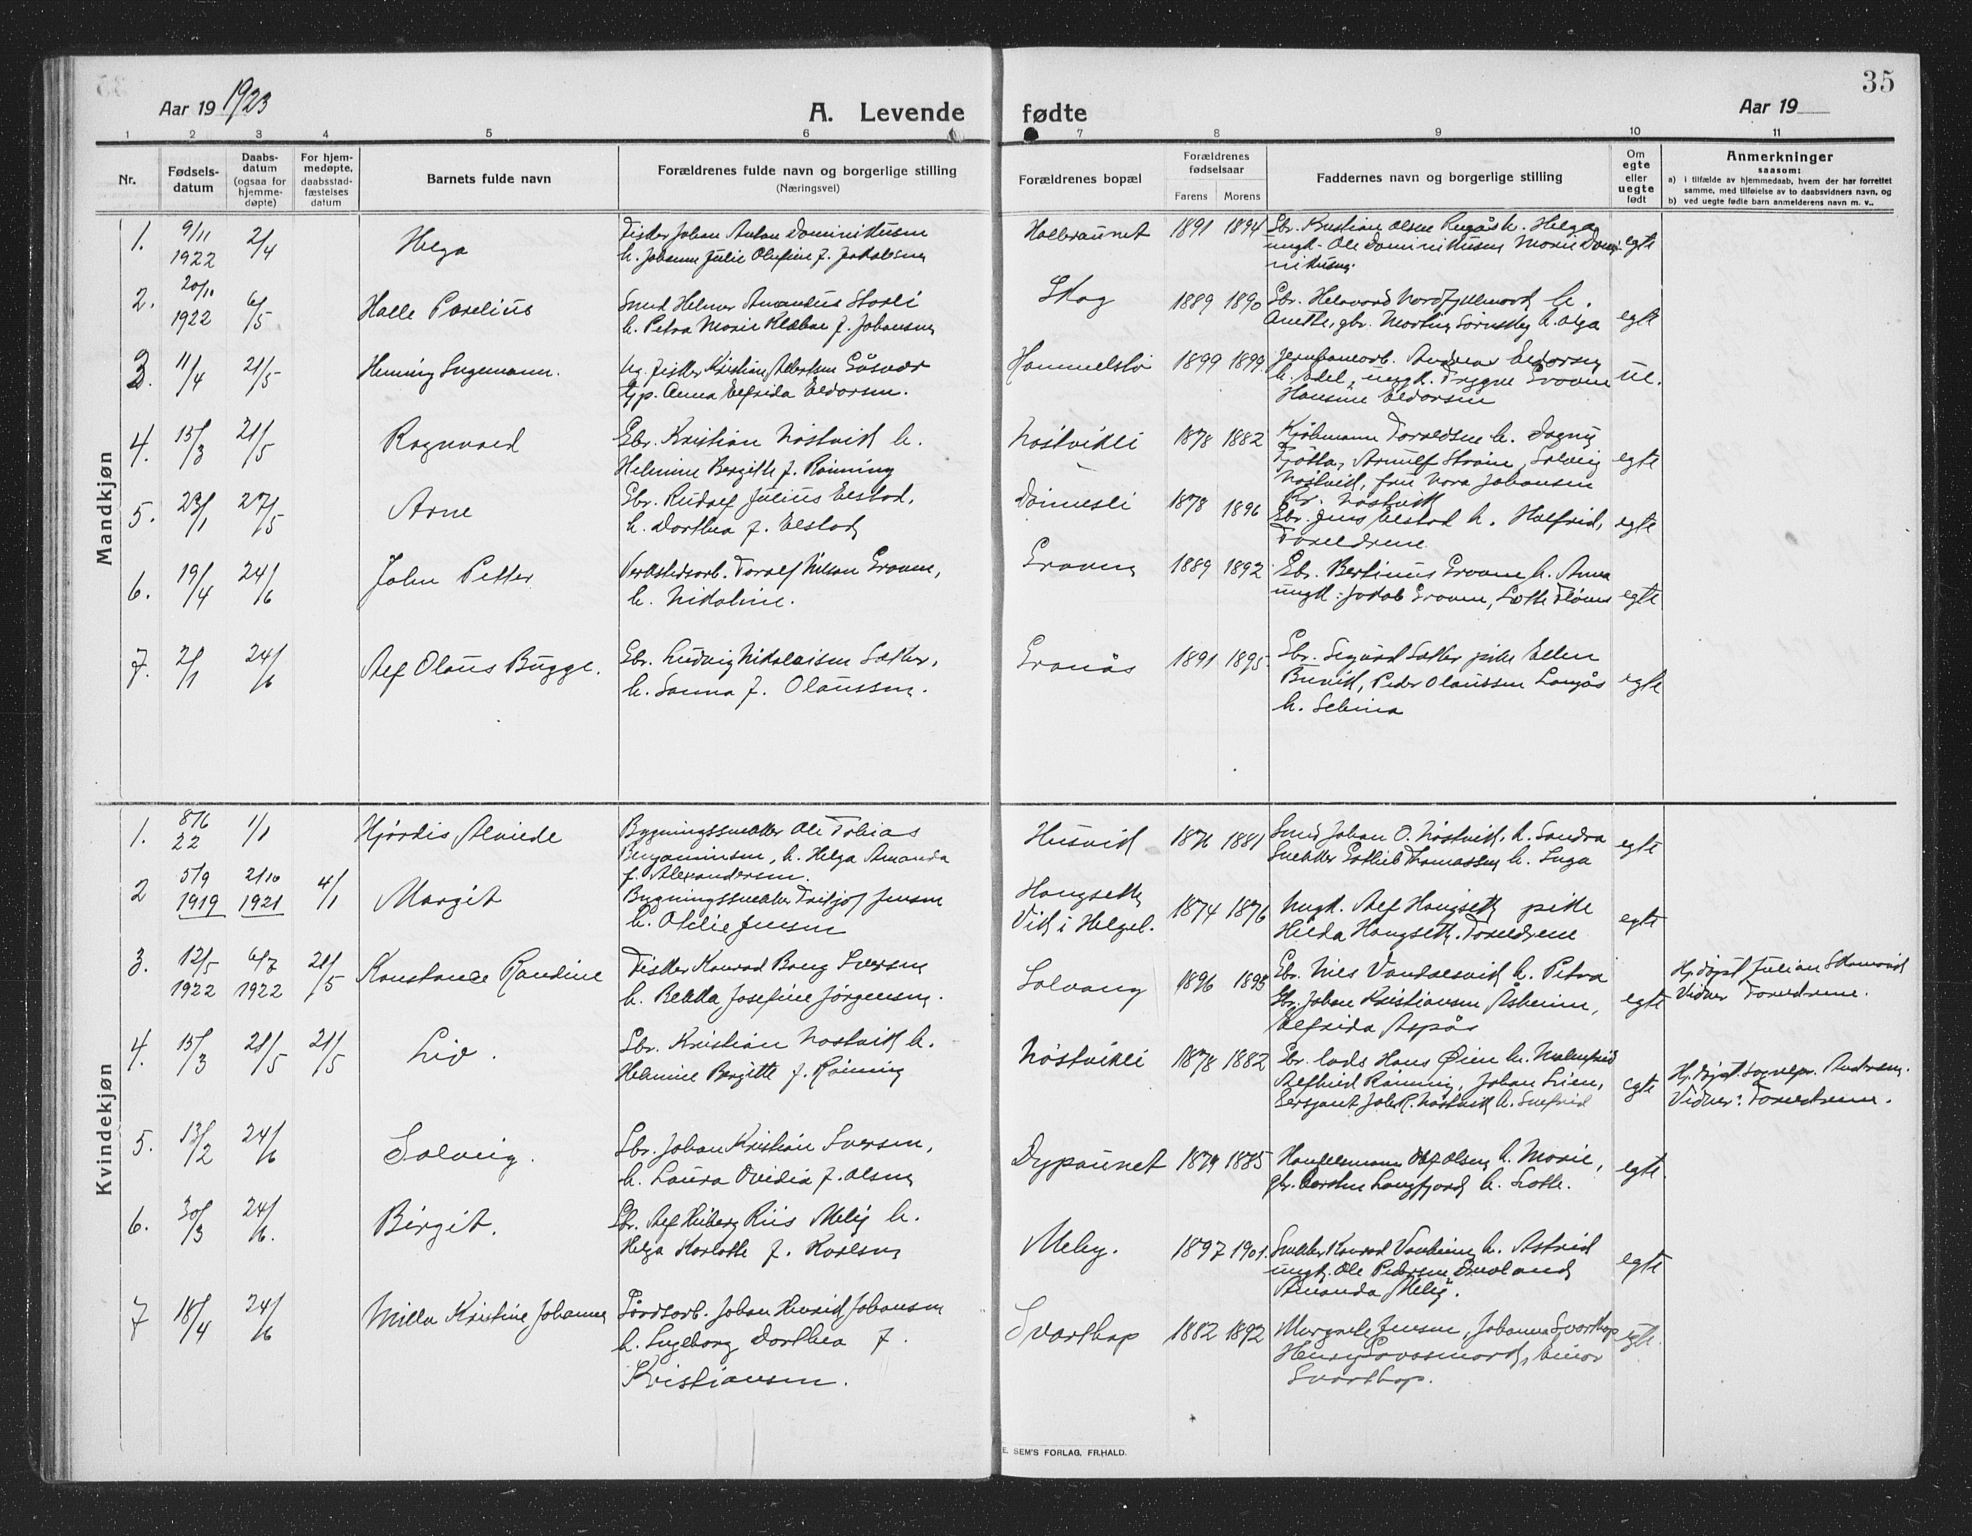 35
Aar 19 1923
A. Levende fødte
Aar 19
1 2 3 4 5 6 7 8 9 10 11
Nr.
Fødsels-
datum
Daabs-
datum
(ogsaa for
hjemme-
døpte)
For hjem-
medøpte,
daabsstad-
fæstelses
datum
Barnets fulde navn
Forældrenes fulde navn og borgerlige stilling
(Næringsvei)
Forældrenes bopæl
Forældrenes
fødselsaar
Farens Morens
Faddernes navn og borgerlige stilling
Om
egte
eller
uegte
født
Anmerkninger
saasom:
a) i tilfælde av hjemmedaab, hvem der har forrettet
samme, med tilføielse av to daabsvidners navn, og
b) ved uegte fødte barn anmelderens navn m. v..
Mandkjøn
1. 9/11 1922 2/4 Helga
Fisker Johan Anton Dominikusen
h. Johanne Julie Olufine f. Jakobsen
1891 1894
Gbr. Kristian Olsen h. Helga
ungk. Ole Dominikusen, Marie Domi-
nikusen.
egte
2. 20/10 1922 6/5 Halle Parelius
Smed Helmer Amandus
h. Petra Marie f. Johansen
Skog 1889 1890
Gbr. h.
Anette, gbr. h. Olga
egte
3. 11/4 21/5 Henning Ingemann.
Ug. fisker Kristian Albertsen Gåsvær
tjp. Anna Elfrida Eldorsen.
1899 1899
Jernbanearb. Andreas Eldorsen
h. Edel, ungk. Trygve
Hansine Eldorsen
ue.
4. 15/3 21/5 Ragnvald
Gbr. Kristian Nøstvik h.
Helmine Bergitte f. Rønning
Nøstvikli 1878 1882
Kjøbmann Toraldsen h. Dagny
Tjøtta, Arnulf Strøm, Solveig
Nøstvik, fru Nora Johansen
Kr. Nøstvik
egte
5. 23/1 27/5 Arne
Gbr. Rudolf Julius Elstad,
h. Dorthea f. Elstad
1878 1896
Gbr. Jens Elstad h. Halfrid,
Foreldrene
egte
6. 19/4 24/6 John Petter
Verkstedsarb. Toralf Nilsen Graven,
h. Nikoline.
Graven 1889 1892
Gbr. Bertinus Graven h. Anna
ungk: Jakob Graven, Lotte
egte
7. 2/1 24/6 Alf Olaus Bugge.
Gbr. Ludvig Nikolaisen Sæter,
h. Sanna f. Olaussen.
Granås 1891 1895
Gbr. Sigurd Sæter pike Ellen
Peder Olaussen Langås
h. Selina
egte
Kvindekjøn
1. 8/6 22 1/1 Hjørdis Alvilde
Bygningssnekker Ole Tobias
Benjaminsen, h. Helga Amanda
f. Alexandersen.
Husvik 1876 1881
Smed Johan O. Nøstvik, h. Sandra
Snekker Gotlieb Thomassen h. Inga
egte
2 5/9 1919 2/10 1921 4/1 Margit
Bygningssnekker Fritjof Jensen
h. Otilie Jensen
Haugseth
Vik i Helgel.
1874 1876
Ungk. Alf Haugseth pike
Hilda Haugseth. Foreldrene
egte
3. 12/5 1922 6/7 1922 21/5 Konstance Randine
Fisker Konrad Bang Iversen
h. Bekka Josefine Jørgensen.
Solvang 1896 1895
Gbr. Nils Vandalsvik h. Petra
Gbr. Johan Kristiansen Åsheim,
Elfrida Aspås
egte
Hj.døpt Julian
Vidner Foreldrene.
4. 15/3 21/5 21/5 Liv.
Gbr. Kristian Nøstvik h.
Helmine Bergitte f. Rønning
Nøstvikli 1878 1882
Gbr. lods Hans Øien h. Malmfrid
Alfhild Rønning, Johan
Sersjant Johs P. Nøstvik h. Snefrid
egte
Hj.døpt. Sognepr. Andersen.
Vidner: Foreldrene.
5. 13/2 24/6 Solveig.
Gbr. Johan Kristian Iversen,
h. Laura Ovidia f. Olsen
Dypaunet 1879 1885
Handelsmann Olaf Olsen h. Marie,
gbr. Carsten Langfjord h. Lotte.
egte.
6. 30/3 24/6. Birgit.
Gbr. Alf Hiberg Riis Meby h.
Helga Karlotte f. Karlsen
Meby. 1897 1901.
Snekker Konrad h. Astrid
ungk. Ole Pedersen
Amanda Meby.
egte
7 18/4 24/6 Milla Kristine Johanne
Jordarb. Johan Hansen Johansen
h. Ingeborg Dorthea f.
Kristiansen.
Svarthop 1882 1892
Margrete Jensen, Johanna Svarthop
Henry Einar
Svarthop.
egte.
E. SEM'S FORLAG, FR.HALD.